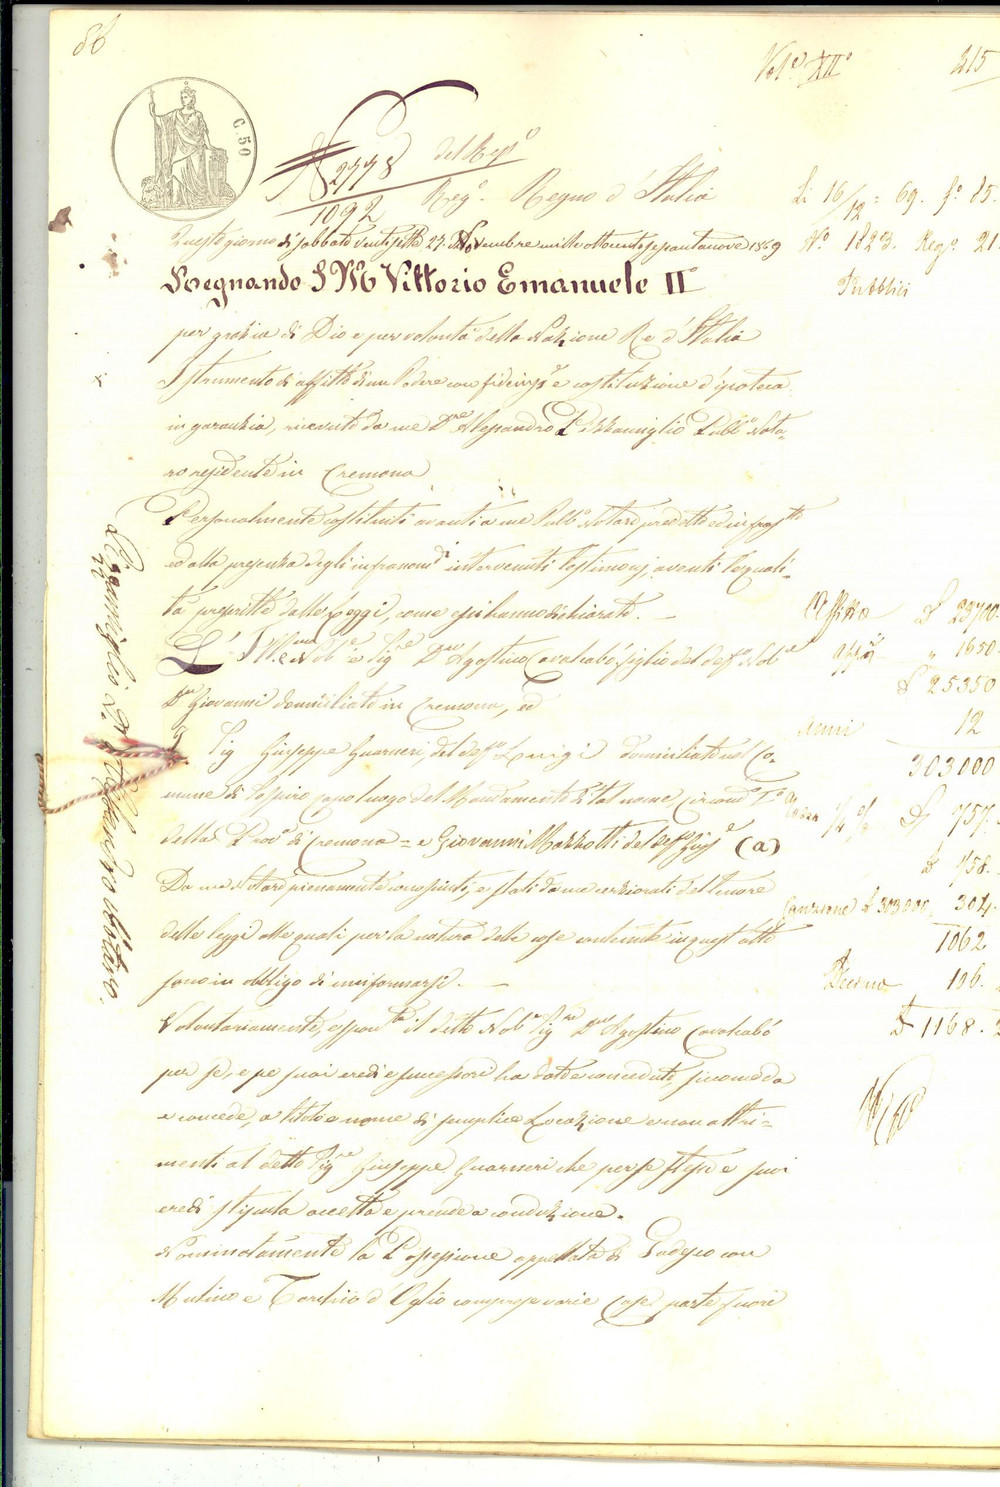 86
Vol.e XII°
215
C. 50
N 2778 del Rep°
1092
Reg.° Regno d'Italia
Li 16/12 = 69. f.° 85.
Questo giorno di sabbato ventisette 27. Novembre mille ottocento sessantanove 1869
N.° 1823. Reg.° 21.
Regnando S M Vittorio Emanuele II°
Pubblici
per grazia di Dio e per volontà della Nazione Re d'Italia
Istrumento di affitto di un Podere con fideius.e e costituzione d'ipoteca
in garanzia, ricevuto da me D.re Alessandro Lizzamiglio Pubb.° Nota-
ro residente in Cremona
Personalmente costituiti avanti a me Pubb.° Notaro predetto ed infras.tto
ed alla presenza degli infranom.di intervenuti Testimonj, aventi le quali-
tà prescritte dalle Leggi, come essi hanno dichiarato. —
Affitto £ 23700.
L' Ill.mo Nob.e Sig.re D.re Agostino Cavalcabò figlio del def.° Nob.e
App. " 1650.
D.re Giovanni domiciliato in Cremona, ed
£ 25350
Anni 12
Il Sig. Giuseppe Guarneri, del def.° Luigi domiciliato nel Co-
303000
mune di Sospiro capo luogo del Mandamento di tal nome Circond.°
1/4 % £ 757.
della Prov.a di Cremona = e Giovanni Mazzotti del def.° Luig.e (a)
£ 758.
Da me Notaro pienamente conosciuti, e stati da me cerziorati del tenore
Cauzione £ 303000 304.
delle leggi alle quali per la natura delle cose contenute in quest'atto
1062
sono in obbligo di uniformarsi. —
Decimo 106.
Volontariamente, il detto Nob.e Sig.re D.re Agostino Cavalcabò
£ 1168.2
per se, e pe' suoi eredi e successori ha dato e conceduto, siccome dà
e concede, a titolo e nome di semplice Locazione e non altri-
menti al detto Sig.re Giuseppe Guarneri che per se stesso e suoi
eredi stipula accetta e prende a conduzione.
Nominatamente la Possessione appellata di Gadesco con
Mulino e Torchio d'Oglio compreso varie case parte fuori
Lizzamiglio D.r Alessandro Notaro